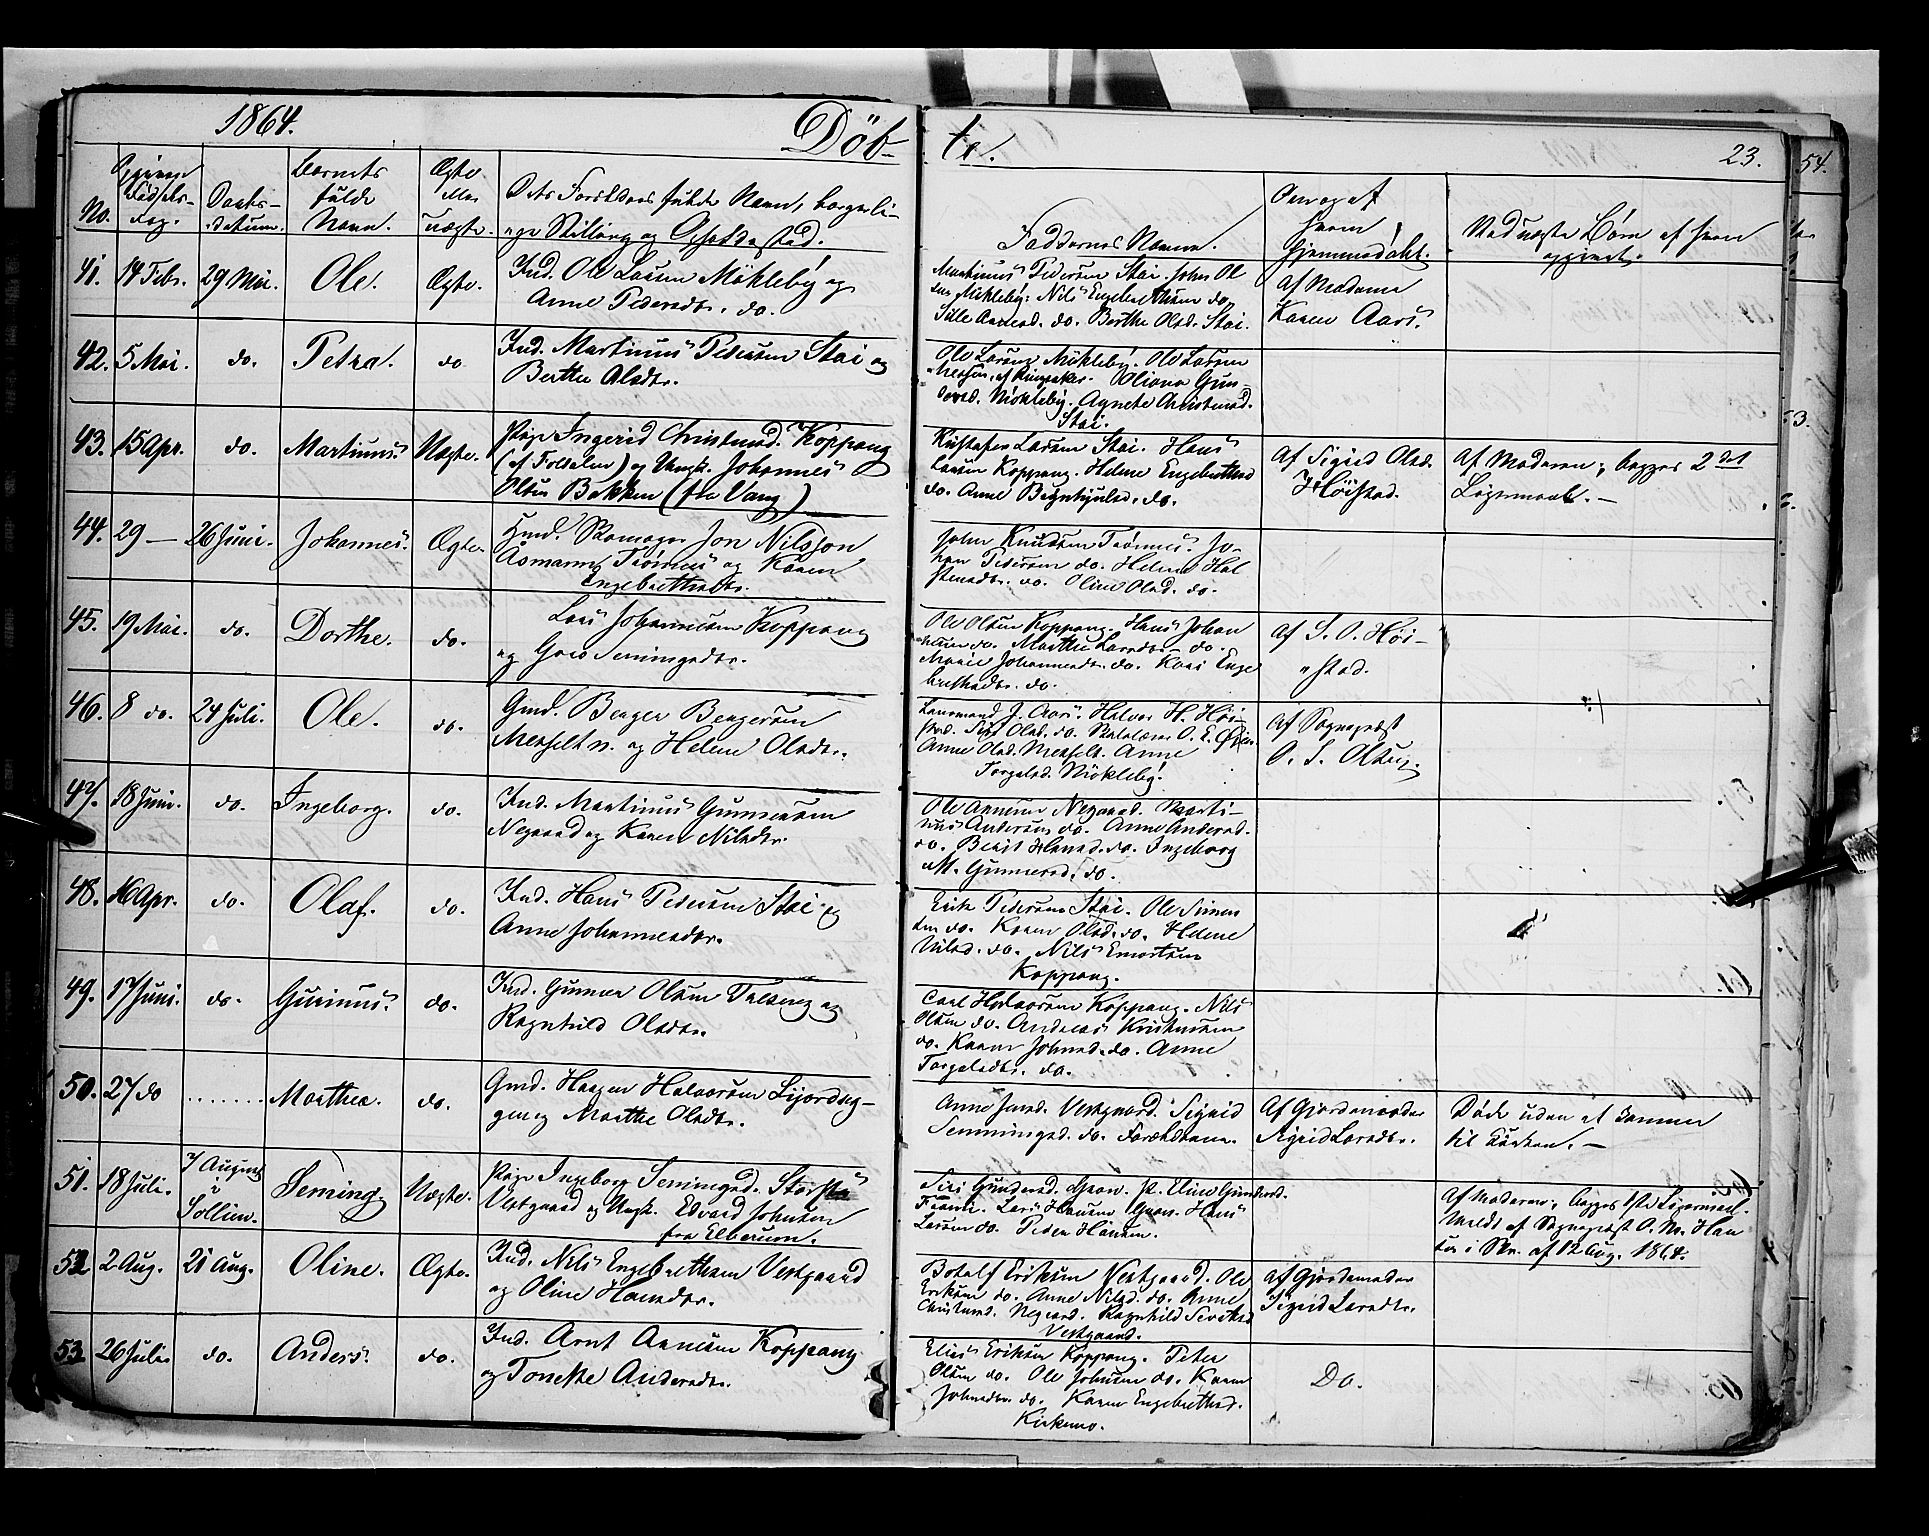 1864.
Döb-
te.
23.
54.
No.
Opgiven Fødsels-
Dag.
Daabs-
datum.
Barnets
fulde
Navn.
Ægte
eller
uægte.
Dets Forældres fulde Navn, borgerli-
ge Stilling og Opholdssted.
Faddernes Navne.
Om og af
hvem
hjemmedøbt.
Ved uægte Børn af hvem
opgivet.
41. 14 Febr. 29 Mai. Ole. Ægte.
Ind. Ole Larsen Mökleby og
Anne Pedersdtr. do.
Martinus Pedersen Stai. John Ol
sen Mökleby. Nils Engebrethsen do.
Sille do. Berthe Olsd. Stai.
Af Madame
Karen Aars.
42. 5 Mai. do. Petra. do
Ind. Martinus Pedersen Stai og
Berthe Olsdtr.
Ole Larsen Mökleby. Ole Larsen
af Ringsaker. Oliana Gun-
dersd. Mökleby. Agnete Christensd.
Stai.
43. 15 Apr. do. Martinus. Uægte.
Pige Ingerid Christensd. Koppang
(af Foldalen) og Ungk. Johannes
Olsen Bakken (fra Vang)
Larsen Stai. Hans
Larsen Koppang. Helene Engebrethsd
do. Anne do.
Af Sigrid Olsd.
Höistad.
Af Moderen; begges 2det
Leiermaal. -
44. 29 - 26 Juni. Johannes. Ægte.
Skomager Jon Nilsson
Aasmann Trönnes og Karen
Engebrethsdtr.
John Knudsen Trönnes. Jo-
han Pedersen do. Helene Hal
stensdtr. do. Oline Olsd. do.
45. 19 Mai. do. Dorthe. do.
Lars Johannesen Koppang
og Goro Semmingsdtr.
Ole Olsen Koppang. Hans Johan
nesen do. Marthe Larsdtr. do.
Marie Johannesdtr. do. Kari Enge
brethsdtr. do.
Af S. O. Höi-
stad.
46. 8 do. 24 Juli. Ole. do.
Gmd. Berger Bergersen
Messelt n. og Helene Olsdtr.
Lensmand J. Aars. Halvor H. Höi-
stad. Siri Olsd. do. Skolelærer O. E. Öien.
Anne Olsd. Messelt. Anne
Torgalsd. Mökleby.
Af Sognepræst
O. S. Olstug.
47. 18 Juni. do. Ingeborg. do.
Ind. Martinus Gunnersen
Negaard og Karen Nilsdtr.
Ole Arnesen Negaard. Marti-
nus Andersen do. Anne Andersd.
do. Berit Hansd. do. Ingeborg
M. Gunnersd. do.
48. 16 Apr. do. Olaf. do.
Ind. Hans Pedersen Stai og
Anne Johannesdtr.
Erik Pedersen Stai. Ole Simen
sen do. Karen Olsd. do. Helene
Nilsd. do. Nils
Koppang.
49. 17 Juni. do. Gunnus. do.
Ind. Gunner Olsen og
Ragnhild Olsdtr.
Carl Halvorsen Koppang. Nils
Olsen do. Andreas Kristensen
do. Karen Johnsd. do. Anne
Torgalsdtr. do.
50. 27 do ....... Marthea. do.
Gmd. Haagen Halvorsen
og Marthe Olsdtr.
Anne Vestgaard. Sigrid
Semmingsd. do. Forældrene.
Af Gjordemoder
Sigrid Larsdtr.
Døde uden at komme
til Kirken. -
51. 18 Juli. 7 August
i
Sollien. Seming. Uægte.
Pige Ingeborg Semingsd.
Vestgaard og Ungk. Edvard Johnsen
fra Elverum.
Siri Gundersd. Eline Gundersd.
Lars Hansen Hans
Larsen do. Peder Hansen.
Af Moderen; begges 1ste Leiermaal.
Meldt af Sognepræst O. M. Han
sen i Skr. af 12 Aug. 1864.
52 2 Aug. 21 Aug. Oline. Ægte.
Ind. Nils Engebrethsen Vestgaard
og Oline Hansdtr.
Botolf Eriksen Vestgaard. Ole
Eriksen do. Anne Nilsd. do. Anne
Christensd. Negaard. Ragnhild
Vestgaard.
Af Gjordemoder
Sigrid Larsdtr.
53 26 Juli. do. Anders. do.
Ind. Arnt Arnesen Koppang
og Tonette Andersdtr.
Elias Eriksen Koppang. Peter
Olsen do. Ole Johnsen do. Karen
Johnsdtr. do. Karen Engebrethsd.
Kirkemo.
Do.